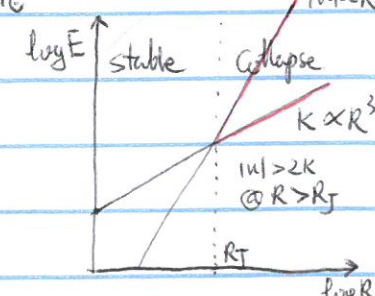 log E
stable
Collapse
K ∝ R³
|u| > 2K
@ R > R_J
R_J
log R